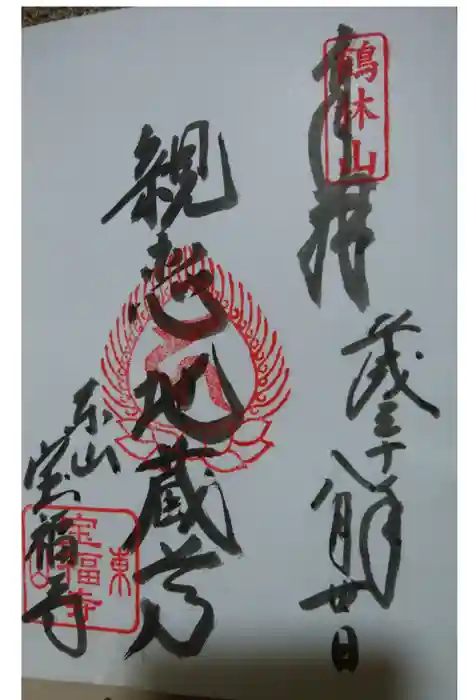 奉拝
鶴林山
平成三十年
八月廿日
親恋地蔵尊
東山
宝福寺
東山
宝福寺